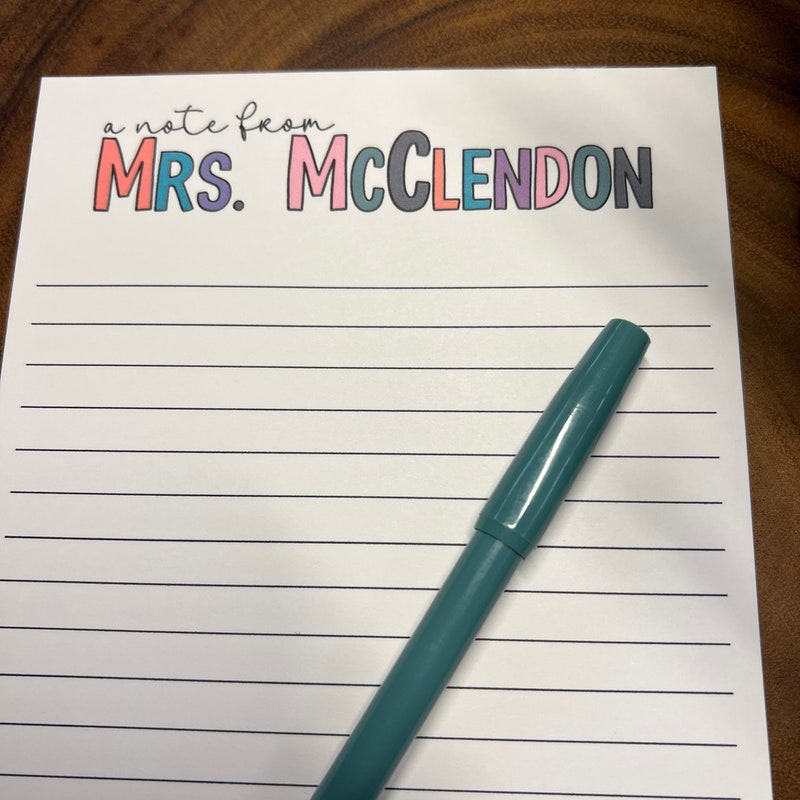 a note from
MRS. MCCLENDON